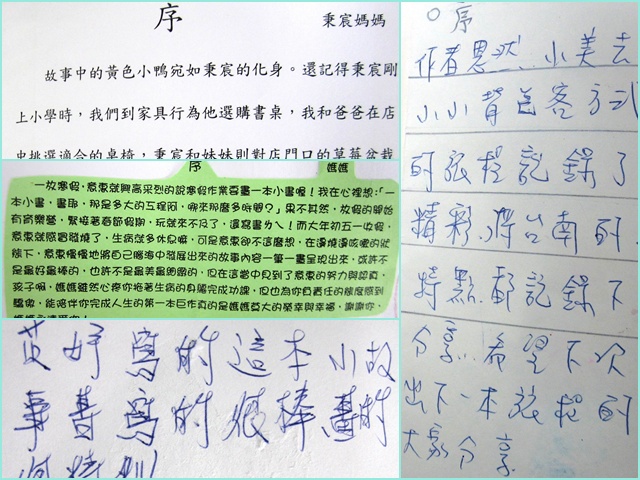 序
秉宸媽媽
故事中的黃色小鴨宛如秉宸的化身。還記得秉宸剛
上小學時,我們到家具行為他選購書桌,我和爸爸在店
中挑選適合的桌椅,秉宸和妹妹則對店門口的草莓盆栽
序 媽媽
一放寒假,意潔就興高采烈的說寒假作業要畫一本小書喔!我在心裡想:「一
本小書,畫耶,那是多大的工程阿,哪來那麼多時間?」果不其然,放假的開始
有音樂營,緊接著春節假期,玩就來不及了,還寫書ㄅㄟ!而大年初五一收假,
意潔就感冒發燒了,生病就多休息嘛,可是意潔卻不這麼想,在邊燒邊咳嗽的狀
態下,意潔慢慢地將自己腦海中發展出來的故事內容一筆一畫呈現出來,或許不
是最好最棒的,也許不是最美最細緻的,但在這當中見到了意潔的努力與認真,
孩子啊,媽媽雖然心疼你拖著生病的身軀完成功課,但也為你負責任的態度感到
驕傲,能陪伴你完成人生的第一本巨作真的是媽媽莫大的榮幸與幸福,謝謝你,
苡妤寫的這本小故
事書寫的很棒,畫的
序
作者恩
小美去
小小背包客方式
的旅程記錄了
精彩,將台南的
特點都記錄下
分享.希望下次
出下一本旅程的
大家分享